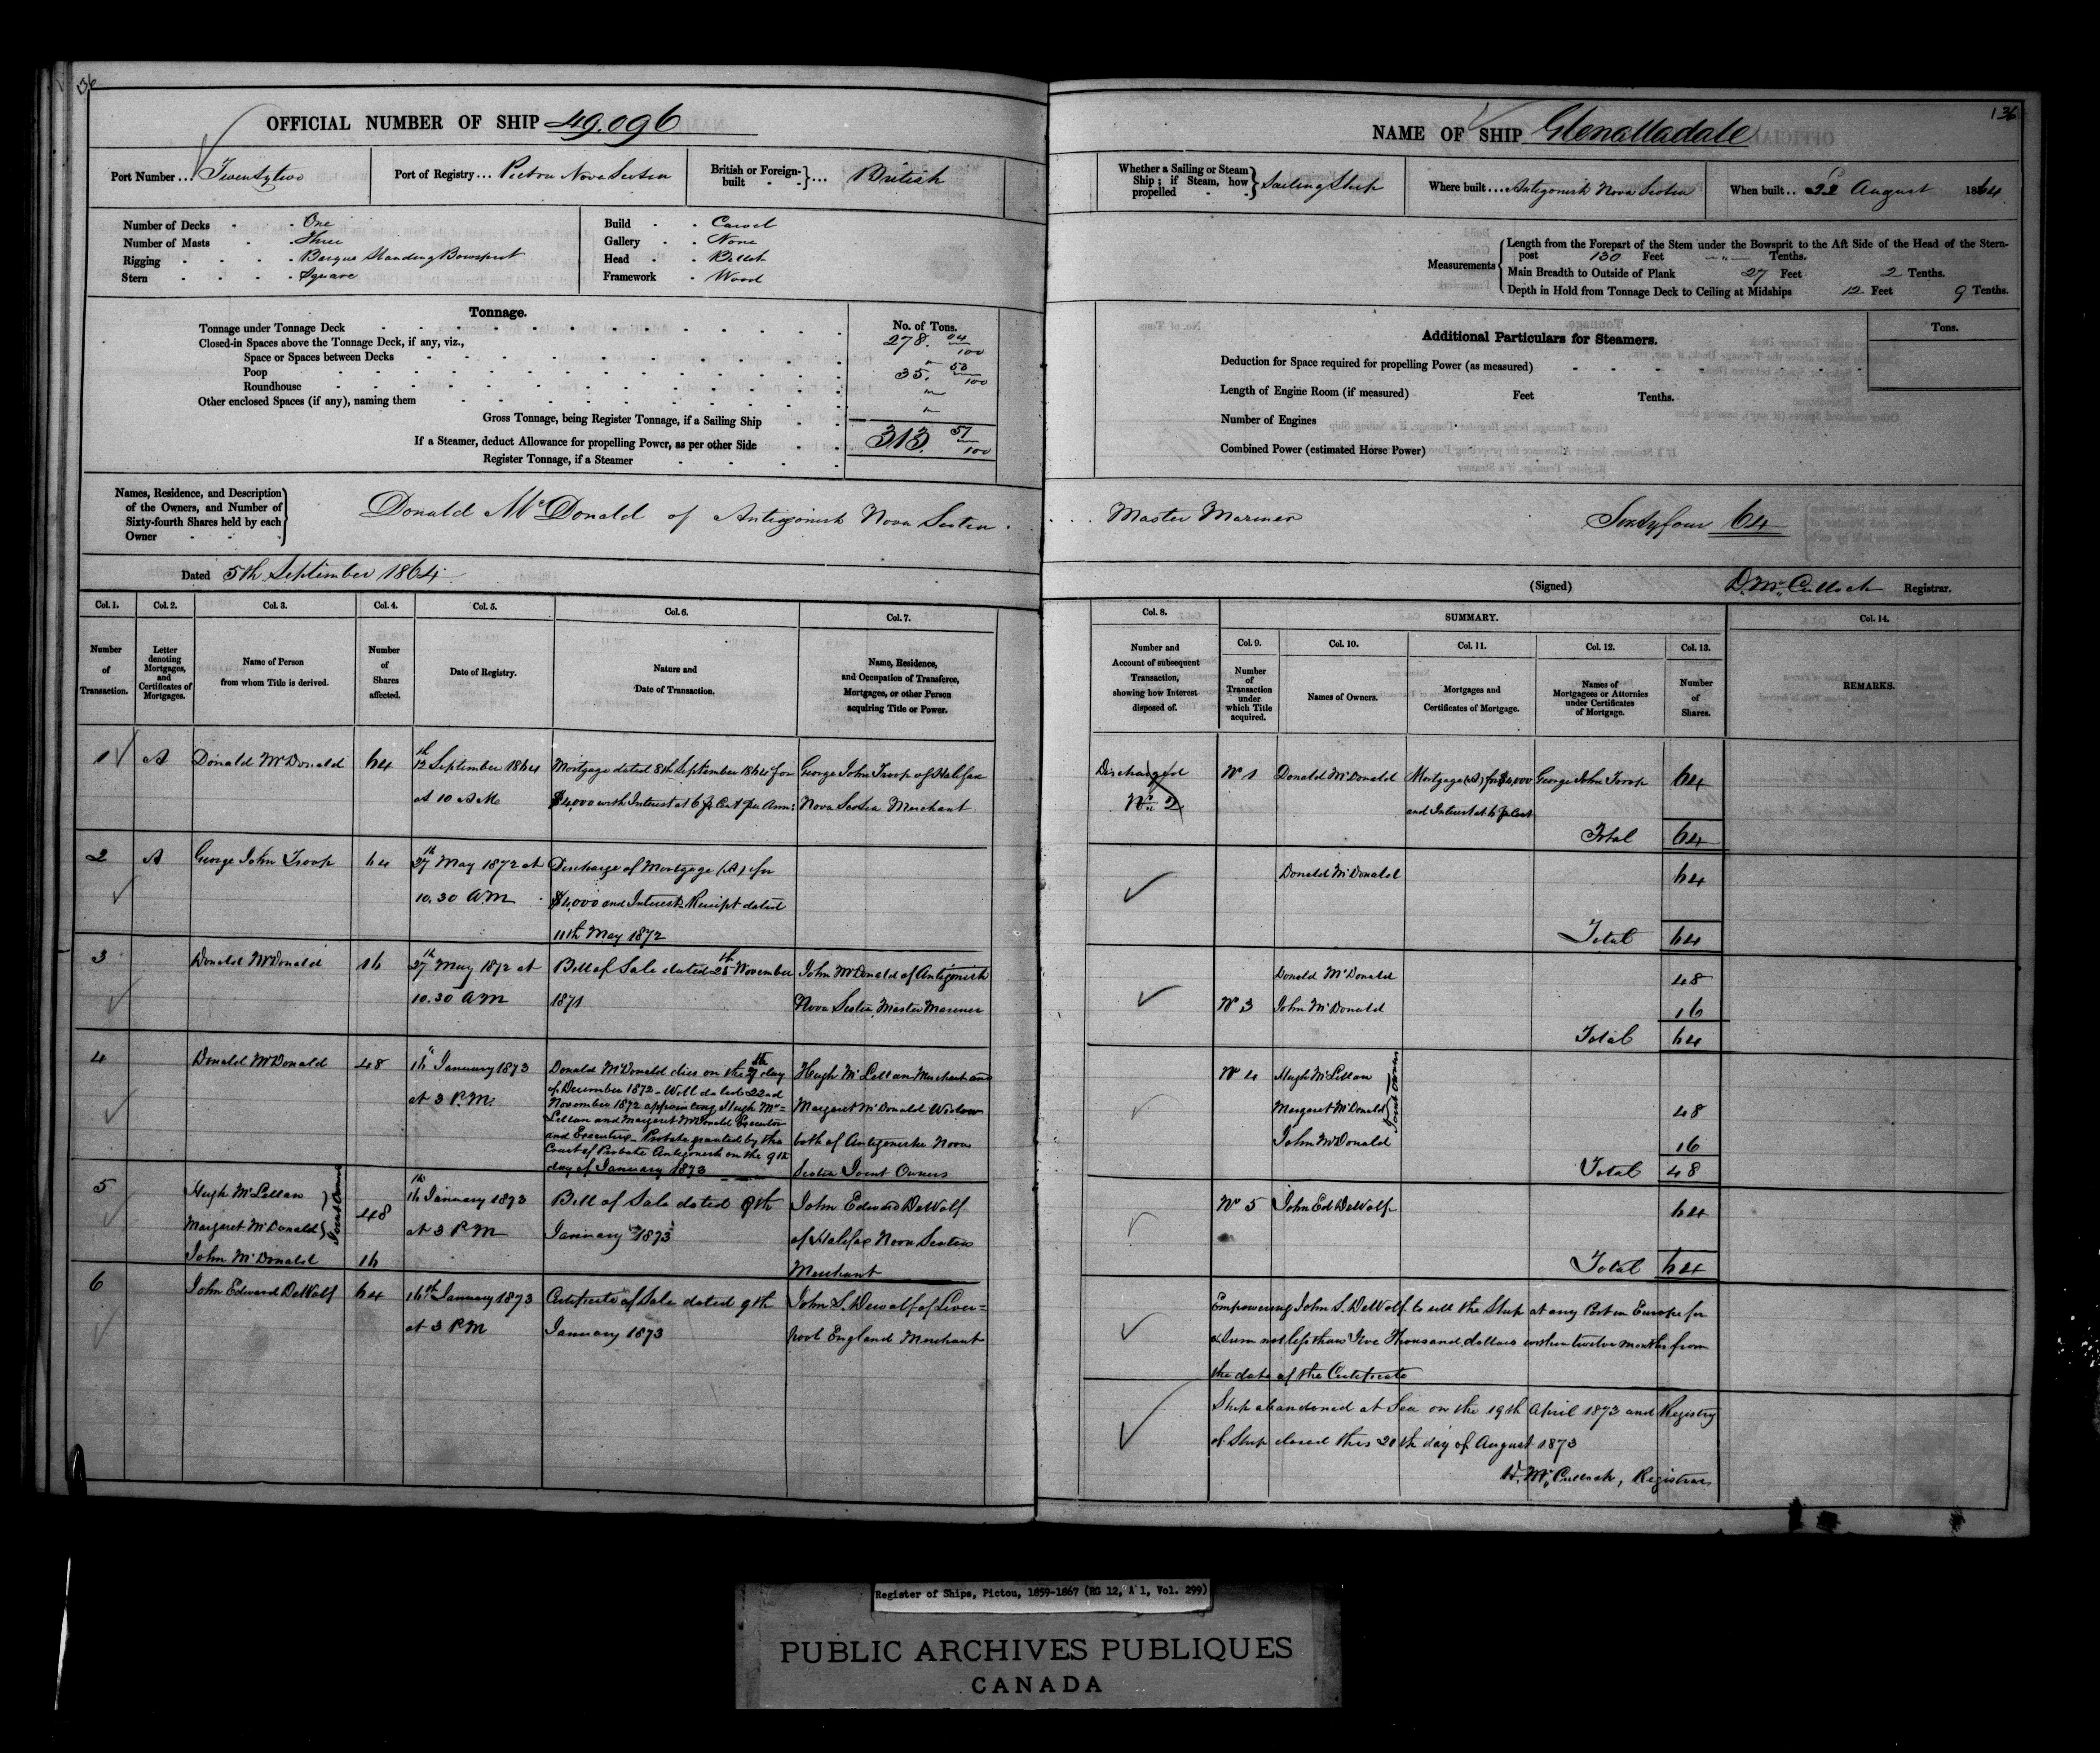 36
OFFICIAL NUMBER OF SHIP 49.096
Port Number... Twentytwo
Port of Registry... Pictou Nova Scotia
British or Foreign-built }... British
Number of Decks - One
Number of Masts - Three
Rigging - Barque Standing Bowsprit
Stern - Square
Build - Carvel
Gallery - None
Head - Billet
Framework - Wood
Tonnage.
No. of Tons.
Tonnage under Tonnage Deck 278. 04/100
Closed-in Spaces above the Tonnage Deck, if any, viz.,
Space or Spaces between Decks "
Poop 35. 53/100
Roundhouse "
Other enclosed Spaces (if any), naming them "
Gross Tonnage, being Register Tonnage, if a Sailing Ship 313. 57/100
If a Steamer, deduct Allowance for propelling Power, as per other Side
Register Tonnage, if a Steamer
Names, Residence, and Description
of the Owners, and Number of
Sixty-fourth Shares held by each
Owner
Donald McDonald of Antigonish Nova Scotia.
Dated 5th September 1864
Col. 1. Col. 2. Col. 3. Col. 4. Col. 5. Col. 6. Col. 7.
Number of Transaction.
Letter denoting Mortgages, and Certificates of Mortgages.
Name of Person from whom Title is derived.
Number of Shares affected.
Date of Registry.
Nature and Date of Transaction.
Name, Residence, and Occupation of Transferee, Mortgagee, or other Person acquiring Title or Power.
1 A Donald McDonald 64 12th September 1864 Mortgage dated 8th September 1864 for George John Troop of Halifax
at 10 AM $4,000 with Interest at 6 p Cent per Ann: Nova Scotia Merchant
2 A George John Troop 64 27th May 1872 at Discharge of Mortgage (A) for
10.30 A.M $4,000 and Interest Receipt dated
11th May 1872
3 Donald McDonald 16 27th May 1872 at Bill of Sale dated 25th November John McDonald of Antigonish
10.30 AM 1871 Nova Scotia Master Mariner
4 Donald McDonald 48 16" January 1873 Donald McDonald dies on the day Hugh McLellan Merchant and
at 3 P.M. of December 1872 - Will dated 22nd
November 1872 appointing Hugh Mc= Margaret McDonald Widow
Lellan and Margaret McDonald Executor
and Executrix - Probate granted by the both of Antigonish Nova
Court of Probate Antigonish on the 9th
day of January 1873 Scotia Joint Owners
5 Hugh McLellan 16th January 1873 Bill of Sale dated 9th John Edward DeWolf
Margaret McDonald } Joint Owners 48 at 3 P.M January 1873 of Halifax Nova Scotia
John McDonald 16 Merchant
6 John Edward DeWolf 64 16th January 1873 Certificate of Sale dated 9th John S. Dewolf of Liver=
at 3 P.M January 1873 pool England Merchant
136
NAME OF SHIP Glenalladale
Whether a Sailing or Steam Ship; if Steam, how propelled } Sailing Ship
Where built... Antigonish Nova Scotia
When built.. 22 August 1864
Measurements
Length from the Forepart of the Stem under the Bowsprit to the Aft Side of the Head of the Stern-
post 130 Feet " Tenths.
Main Breadth to Outside of Plank 27 Feet 2 Tenths.
Depth in Hold from Tonnage Deck to Ceiling at Midships 12 Feet 9 Tenths.
Additional Particulars for Steamers.
Tons.
Deduction for Space required for propelling Power (as measured)
Length of Engine Room (if measured) Feet Tenths.
Number of Engines
Combined Power (estimated Horse Power)
Master Mariner Sixtyfour 64
(Signed) D. McCulloch Registrar.
Col. 8. SUMMARY. Col. 14.
Col. 9. Col. 10. Col. 11. Col. 12. Col. 13.
Number and Account of subsequent Transaction, showing how Interest disposed of.
Number of Transaction under which Title acquired.
Names of Owners.
Mortgages and Certificates of Mortgage.
Names of Mortgagees or Attornies under Certificates of Mortgage.
Number of Shares.
REMARKS.
Discharged No 1 Donald McDonald Mortgage (A) for $4,000 George John Troop 64
No 2 and Interest at 6 p Cent
Total 64
Donald McDonald 64
Total 64
Donald McDonald 48
No 3 John McDonald 16
Total 64
No 4 Hugh McLellan
Margaret McDonald } Joint Owners 48
John McDonald 16
Total 48
No 5 John Ed DeWolf 64
Total 64
Empowering John S. DeWolf to sell the Ship at any Port in Europe for
a Sum not less than Five Thousand dollars within twelve months from
the date of the Certificate
Ship abandoned at Sea on the 19th April 1873 and Registry
of Ship closed this 20th day of August 1873
D. McCulloch, Registrar
Register of Ships, Pictou, 1859-1867 (RG 12, A 1, Vol. 299)
PUBLIC ARCHIVES PUBLIQUES
CANADA